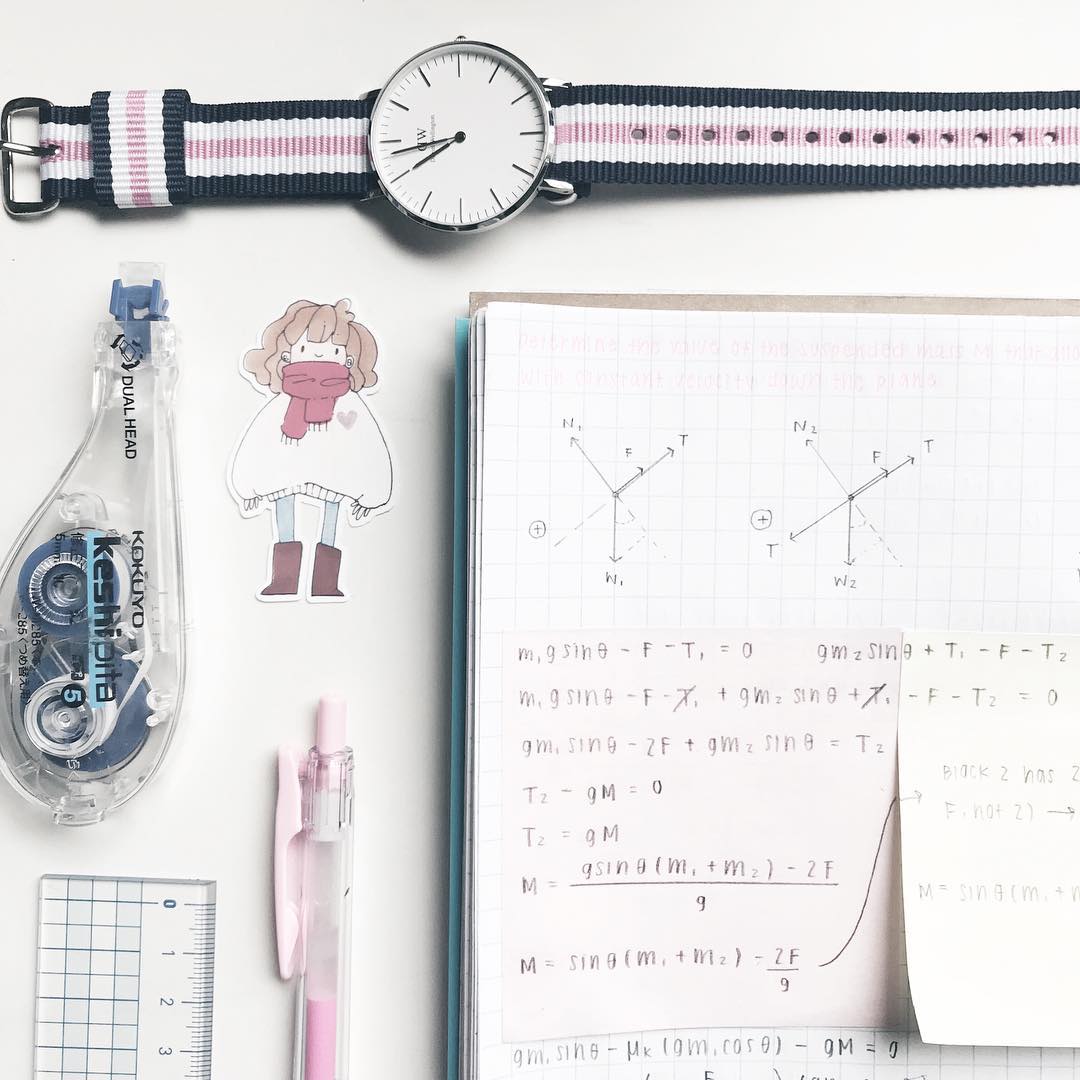 DW
DUAL HEAD
KOKUYO
keshipita
5
Determine the value of the suspended mass M that
with constant velocity down the plane
N₁
F
T
+
W₁
N₂
F
T
+
T
W₂
m₁gsinθ - F - T₁ = 0 gm₂sinθ + T₁ - F - T₂
m₁gsinθ - F - T₁ + gm₂sinθ + T₁ - F - T₂ = 0
gm₁sinθ - 2F + gm₂sinθ = T₂
T₂ - gM = 0
T₂ = gM
M = gsinθ(m₁ + m₂) - 2F
g
M = sinθ(m₁ + m₂) - 2F
g
Block 2 has 2
F, not 2) →
M = sinθ(m₁ +
gm₁sinθ - μₖ(gm₁cosθ) - gM = 0
0
1
2
3